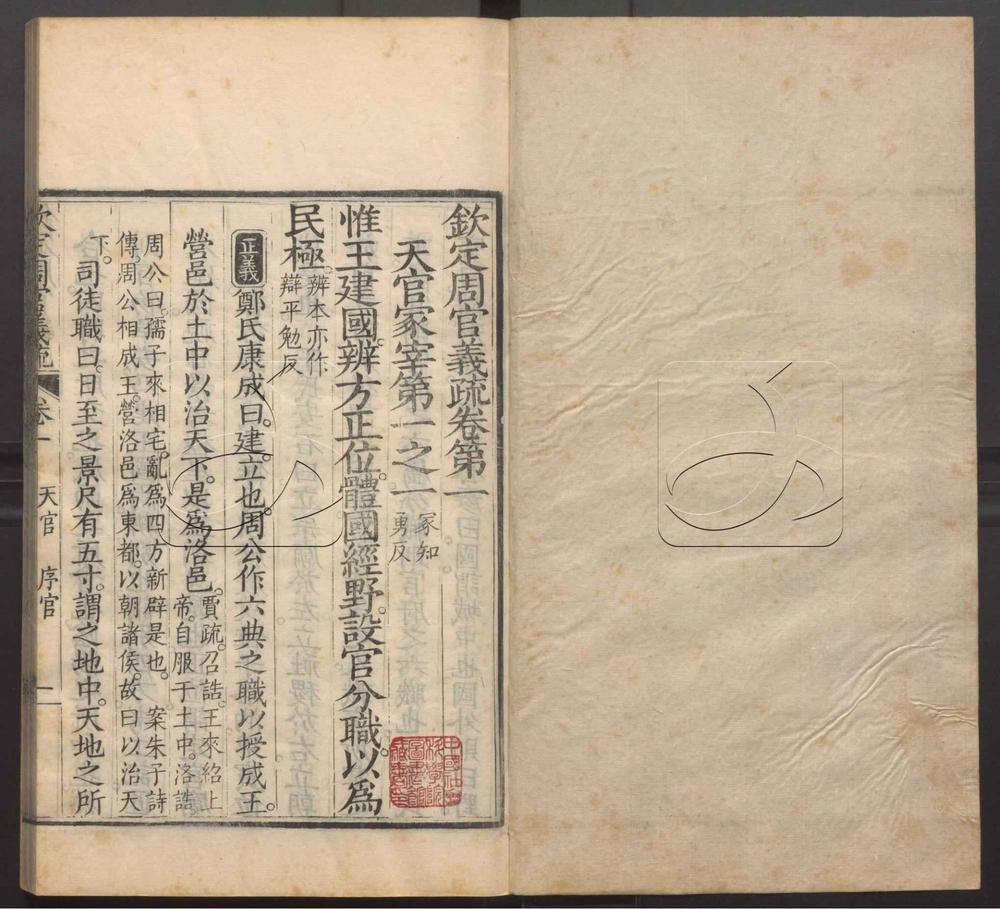 欽定周官義疏卷第一
天官冢宰第一之一冢知勇反
惟王建國。辨方正位。體國經野。設官分職。以爲
民極。辨本亦作辯平勉反
正義鄭氏康成曰。建立也。周公作六典之職以授成王。
營邑於土中以治天下。是爲洛邑。賈疏。召誥。王來紹上帝。自服于土中。洛誥。
周公曰。孺子來相宅。亂爲四方新辟是也。 案朱子詩
傳。周公相成王。營洛邑爲東都。以朝諸侯。故曰以治天
下。司徒職曰。日至之景尺有五寸。謂之地中。天地之所
欽定周官義疏 卷一 天官 序官 一